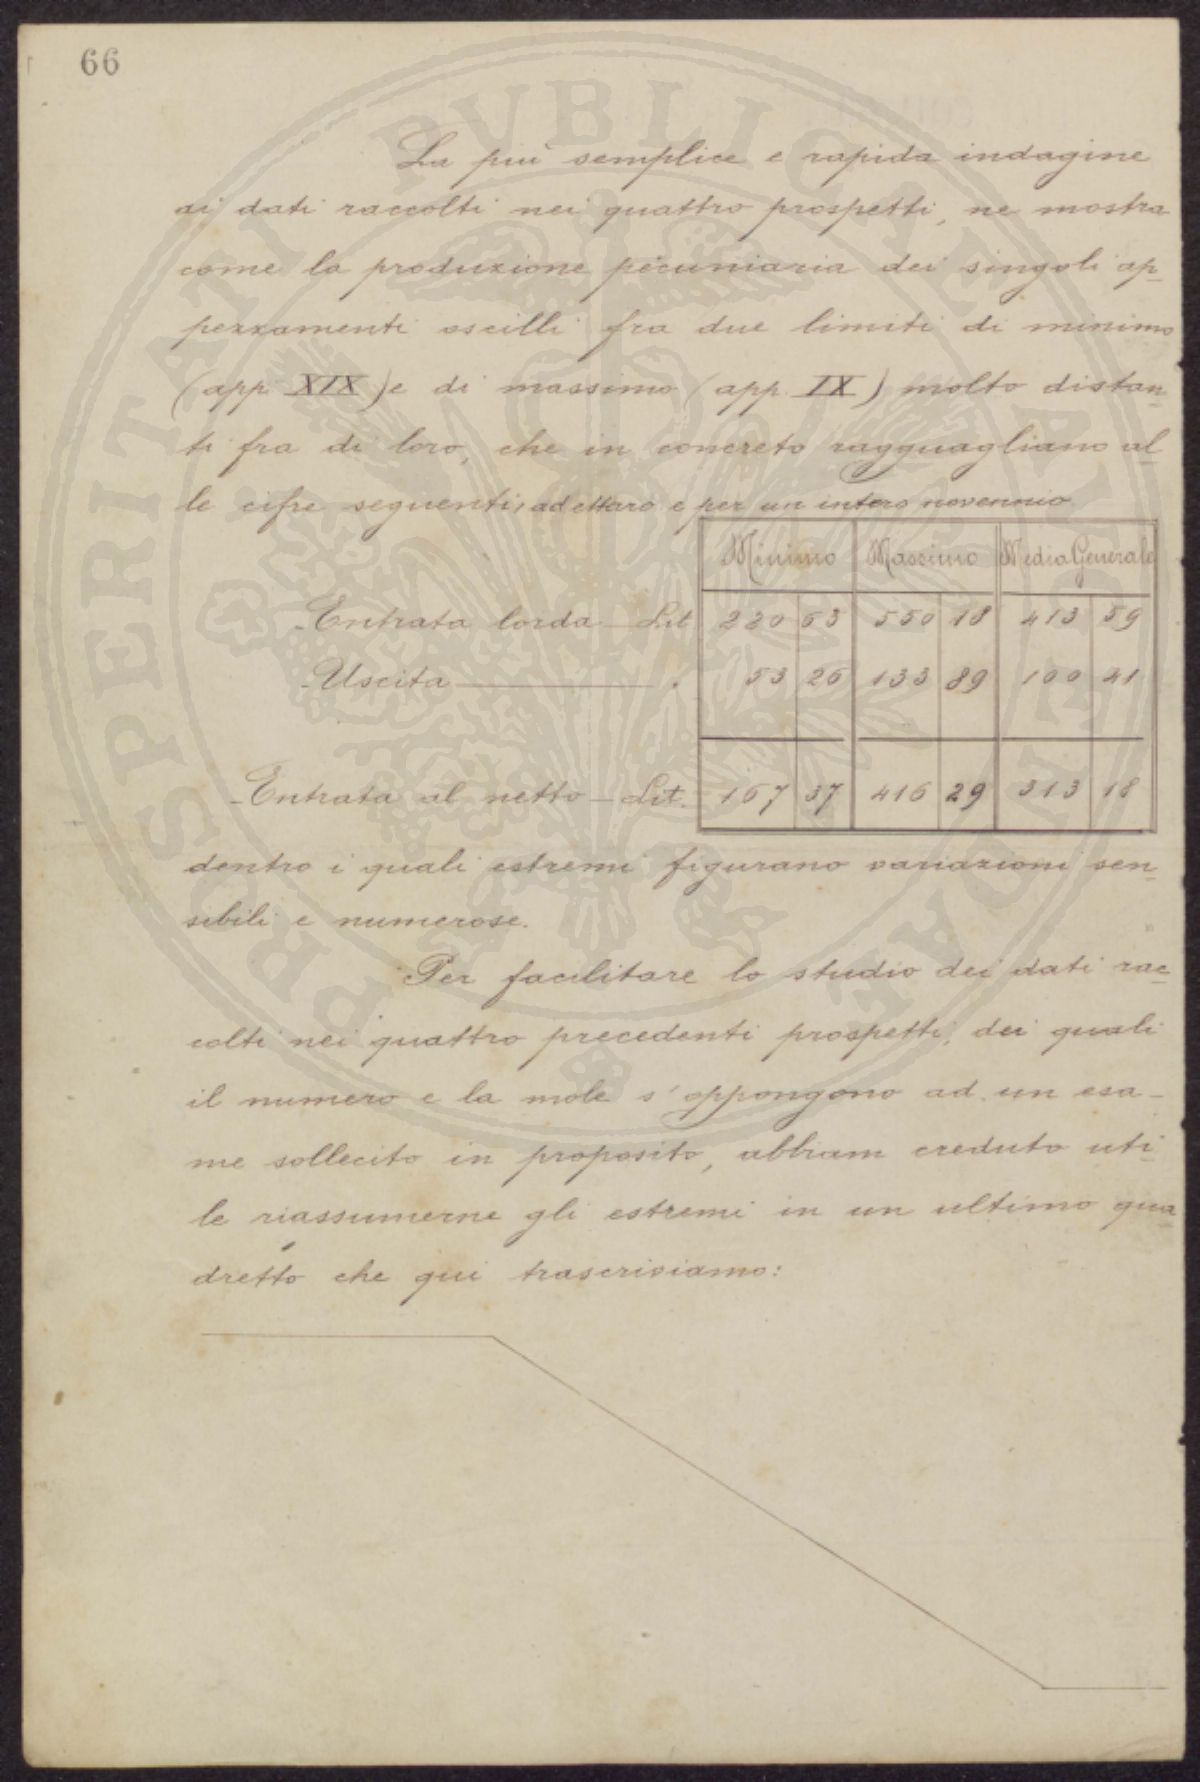 66
PROSPERITATI PVBLICAE AVGENDAE
La più semplice e rapida indagine
ai dati raccolti nei quattro prospetti, ne mostra
come la produzione pecuniaria dei singoli ap-
pezzamenti oscilli fra due limiti di minimo
(app. XIX) e di massimo (app. IX) molto distan-
ti fra di loro, che in concreto ragguagliano al-
le cifre seguenti, ad ettaro e per un intero novennio
Minimo Massimo Media Generale
Entrata lorda Lit 220 63 550 18 413 59
Uscita " 53 26 133 89 100 41
Entrata al netto - Lit. 167 37 416 29 313 18
dentro i quali estremi figurano variazioni sen-
sibili e numerose.
Per facilitare lo studio dei dati rac-
colti nei quattro precedenti prospetti, dei quali
il numero e la mole s'oppongono ad un esa-
me sollecito in proposito, abbiam creduto uti-
le riassumerne gli estremi in un ultimo qua-
dretto che qui trascriviamo: